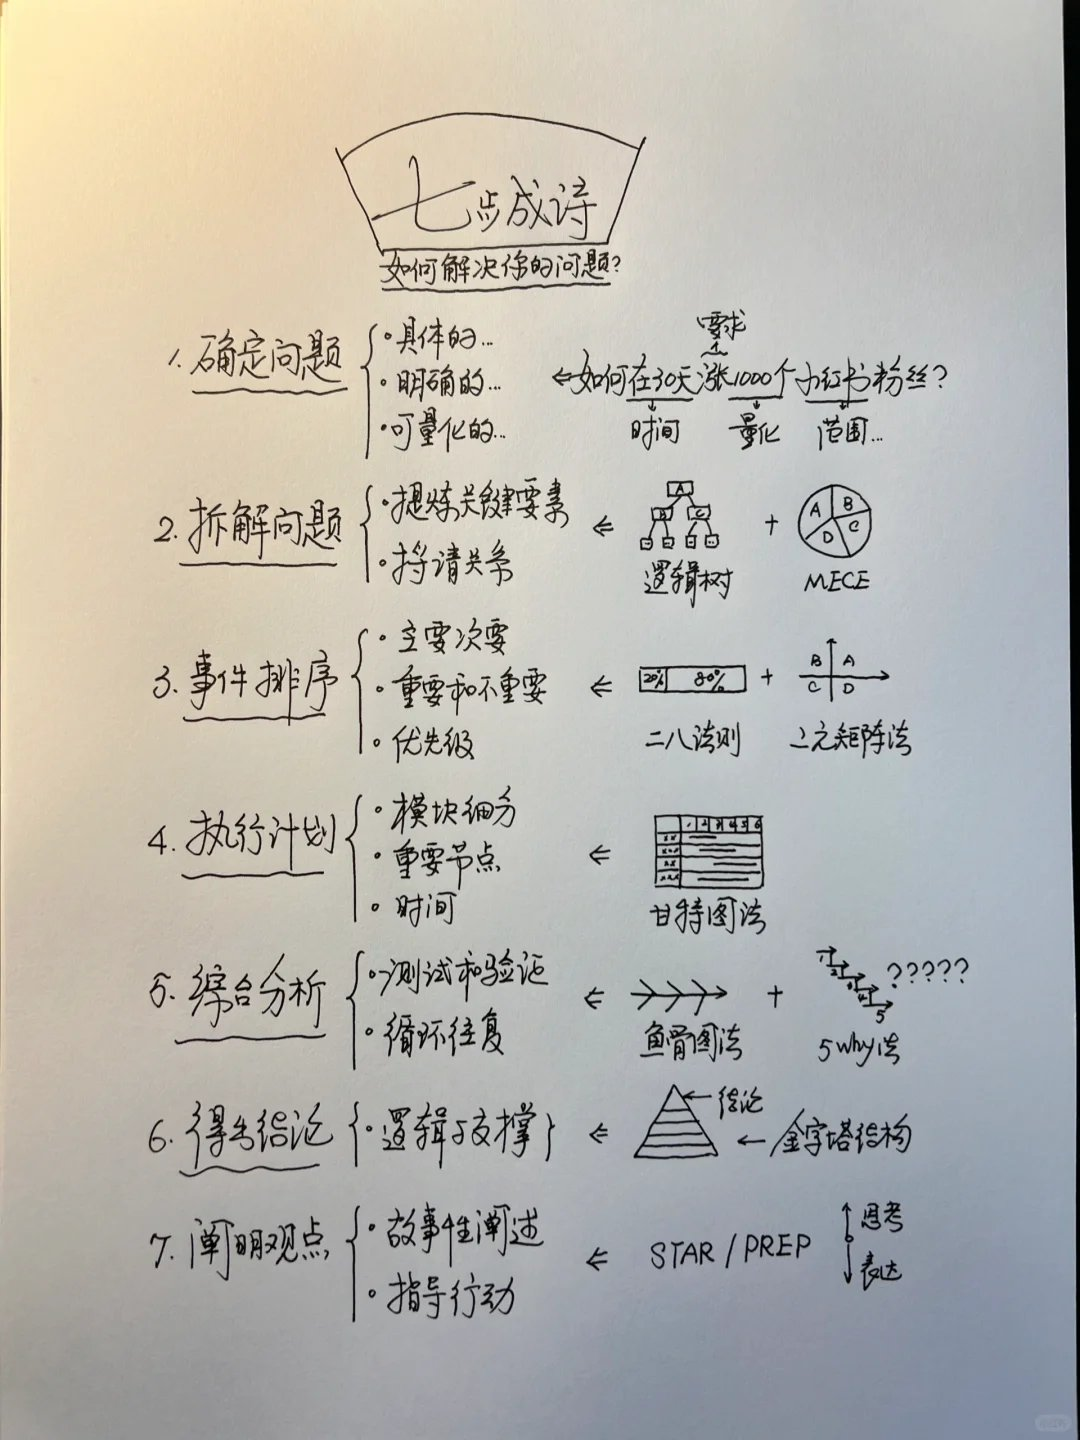 七步成诗
如何解决你的问题?
1. 确定问题
·具体的...
·明确的...
·可量化的...
要求
如何在30天涨1000个小红书粉丝?
时间 量化 范围...
2. 拆解问题
·提炼关键要素
·捋请关系
A
B C
逻辑树
+
A B C D
MECE
3. 事件排序
·主要次要
·重要和不重要
·优先级
20% 80%
二八法则
+
B A
C D
二元矩阵法
4. 执行计划
·模块细分
·重要节点
·时间
1 2 3 4 5 6
甘特图法
5. 综合分析
·测试和验证
·循环往复
鱼骨图法
+
1 2 3 4 5 ?????
5why法
6. 得出结论
·逻辑与支撑
结论
金字塔结构
7. 阐明观点
·故事性阐述
·指导行动
STAR/PREP
思考
表达